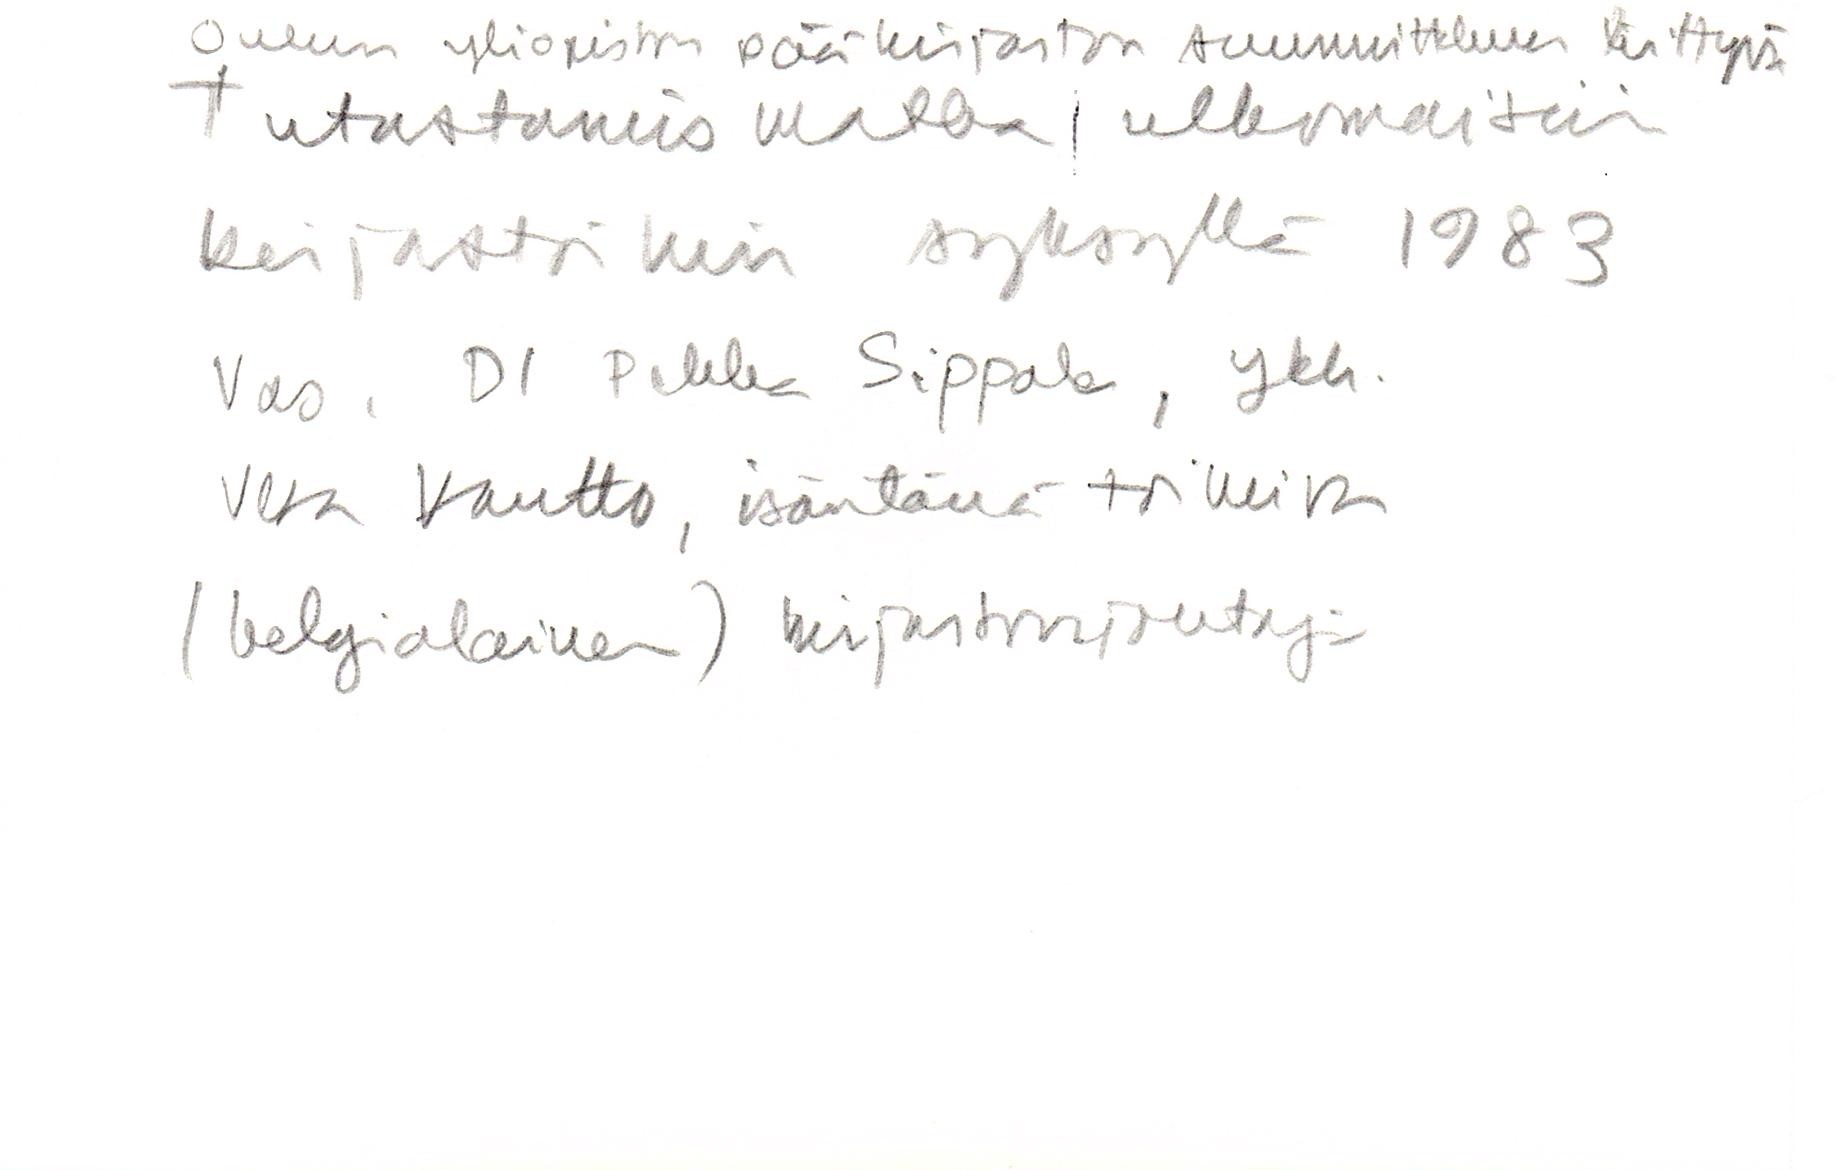 Oulun yliopiston pääkirjaston suunnitteluun liittyvä
Tutustumismatka ulkomaisiin
kirjastoihin syksyllä 1983
Vas. DI Pekka Sippola, ykh.
Vesa Kautto, isäntänä toimiva
(belgialainen) kirjastonjohtaja